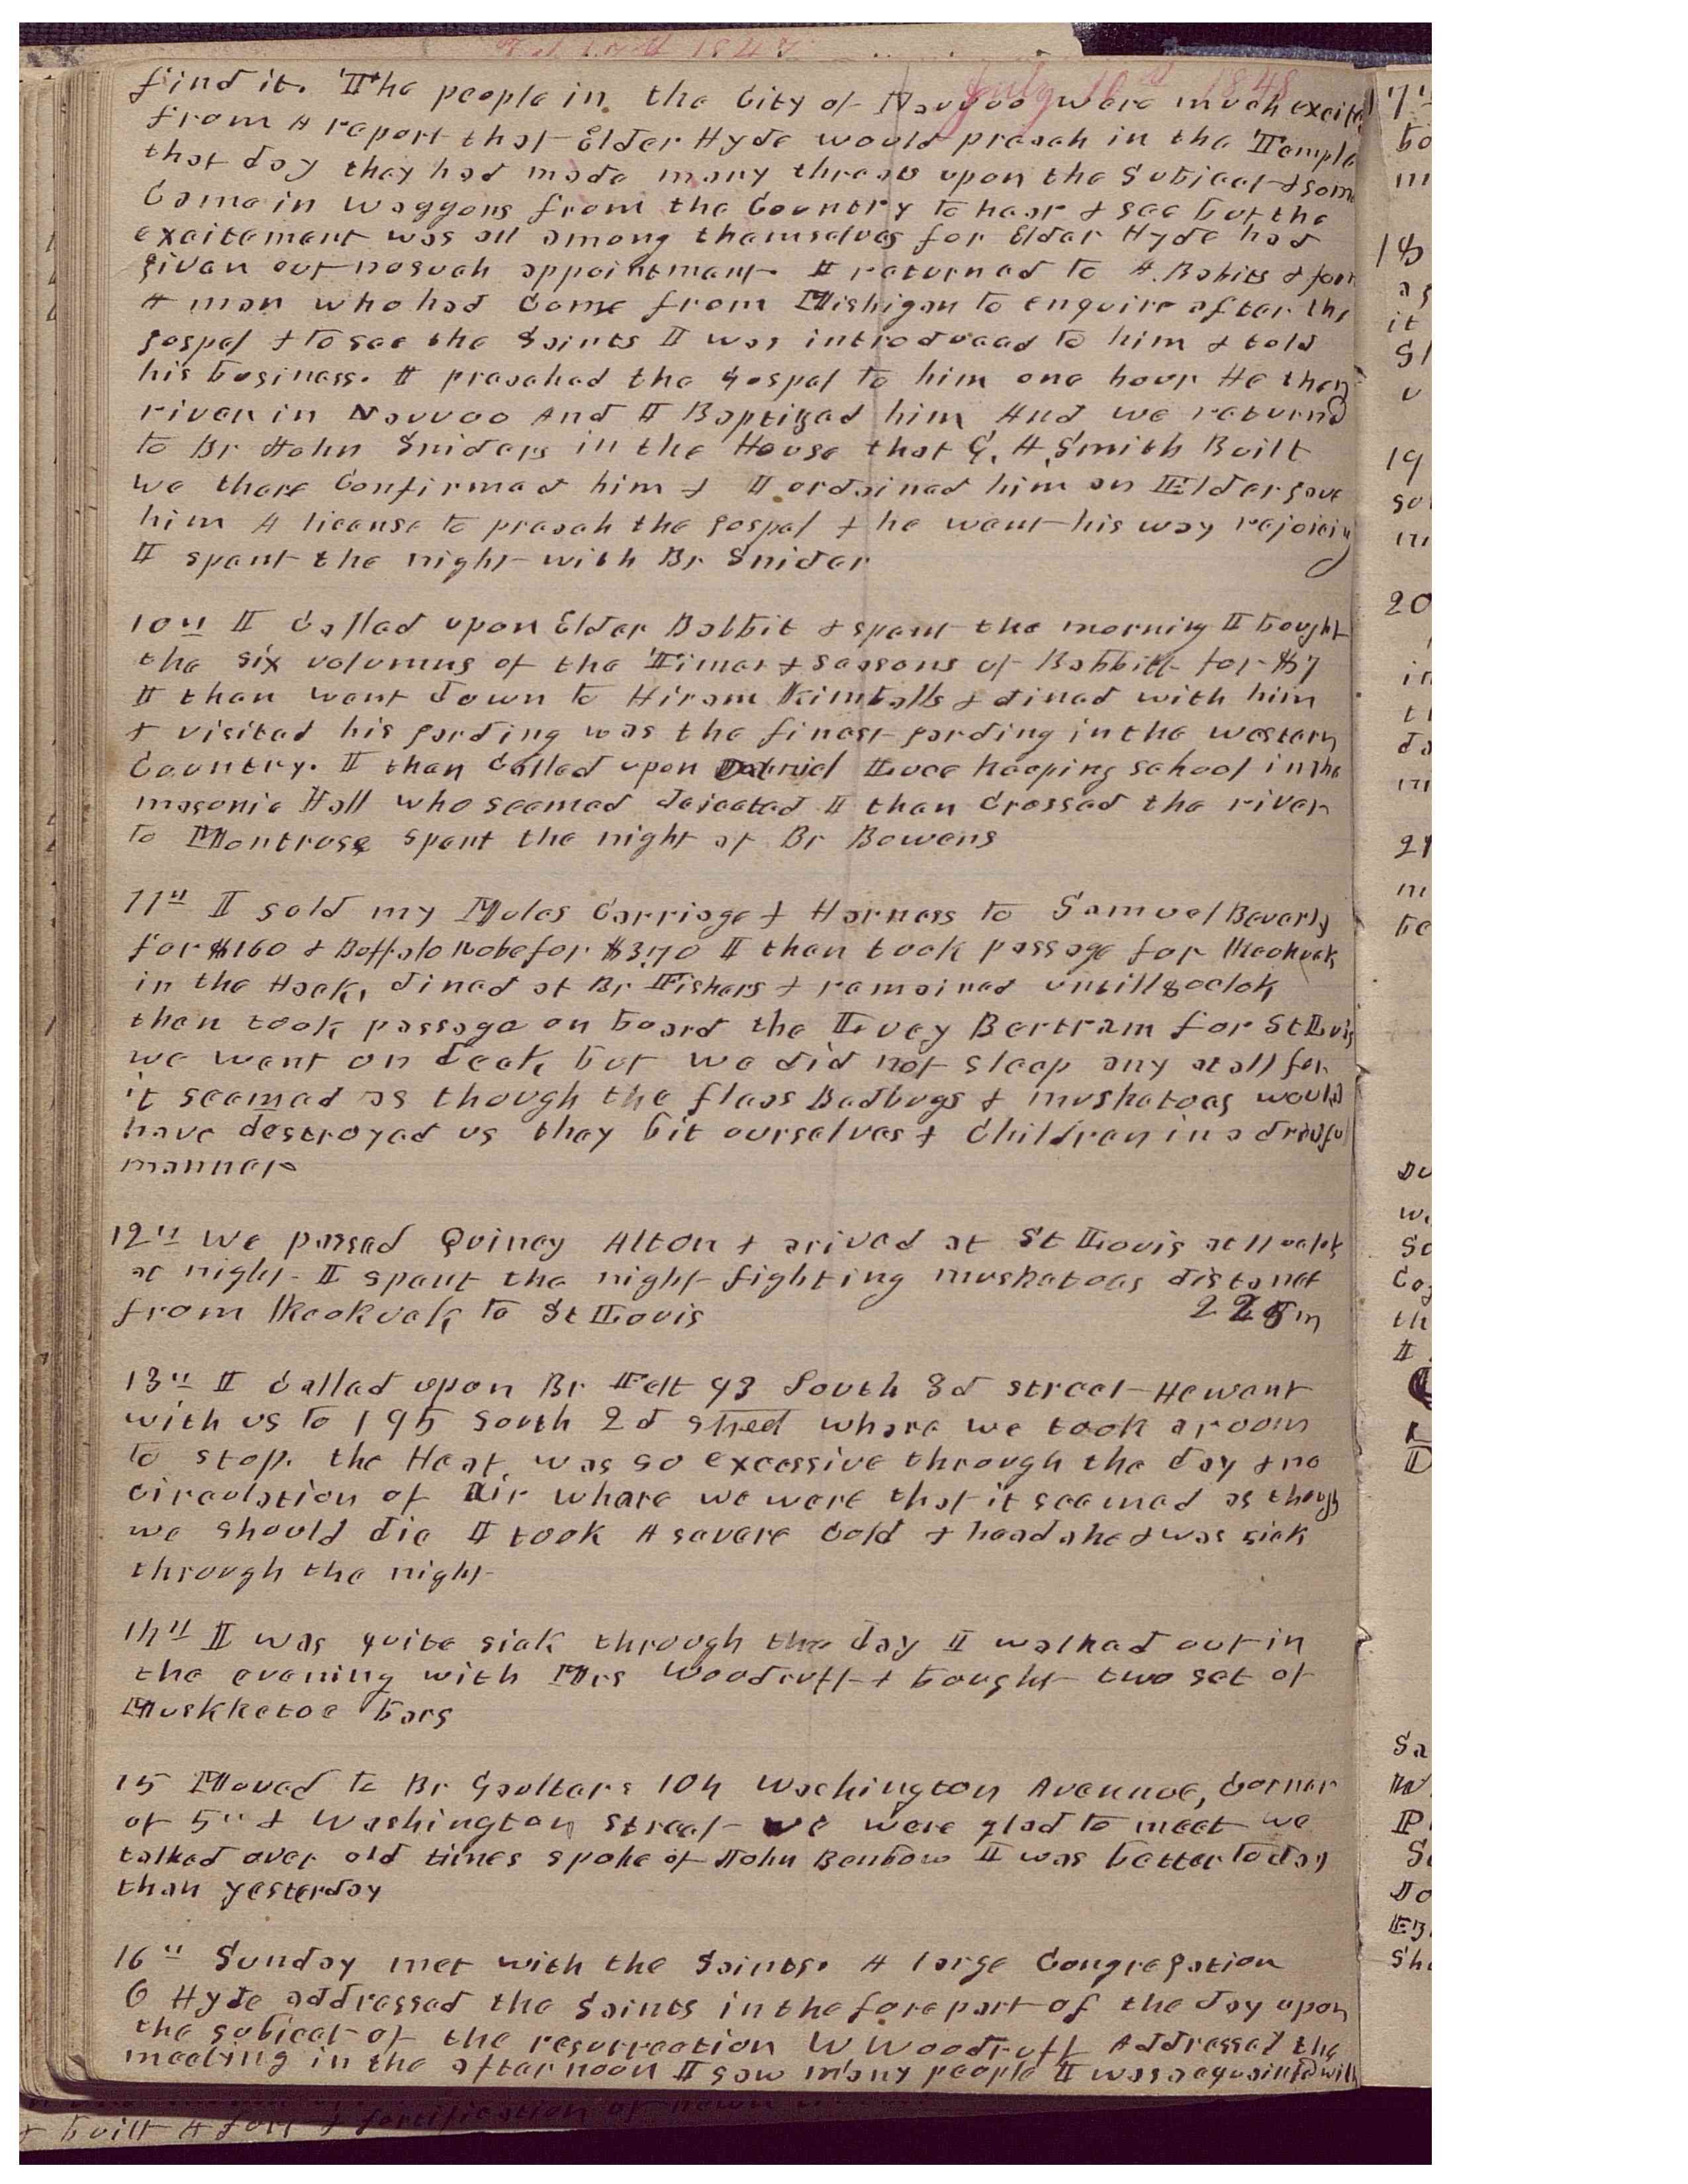 July 10th 1848
find it. The people in the City of Nauvoo were much excited
from A report that Elder Hyde would preach in the Temple
that day they had made many threats upon the Subject & some
Came in waggons from the Country to hear & see but the
excitement was all among themselves for Elder Hyde had
given out no such appointment. I returned to A. Babits & foun
A man who had Come from Mishigan to enquire after the
gospel & to see the Saints I was introduced to him & told
his business. I preached the gospel to him one hour He then
river in Nauvoo And I Baptized him And we returnd
to Br John Sniders in the House that G. A. Smith Built
we there Confirmed him & I ordained him an Elder gave
him A license to preach the gospel & he went his way rejoicing
I spent the night with Br Snider
10th I Called upon Elder Babbit & spent the morning I bought
the six volumns of the Times & Seasons of Babbitt for $7
I then went down to Hiram Kimballs & dined with him
& visited his garding was the finest garding in the western
Country. I then Called upon Luce keeping school in the
masonic Hall who seemed dejected I then Crossed the river
to Montrose spent the night at Br Bowens
11th I sold my Mules Carriage & Harness to Samuel Beverly
for $160 & Buffalo Robe for $3.70 I then took passage for Keokuek
in the Hack, dined at Br Fishers & remained untill 8 oclok
then took passage on board the Lucy Bertram for St Louis
we went on deck but we did not sleep any at all for
it seemed as though the fleas Badbugs & muskatoes would
have destroyed us they bit ourselves & Children in a dredful
manner
12th we passed Quincy Alton & arived at St Louis at 11 oclok
at night I spent the night fighting muskatoes distanct
from Keokuek to St Louis 225 m
13th I Called upon Br Felt 93 South 3d street He went
with us to 195 South 2d street where we took a room
to stop. the Heat was so excessive through the day & no
circulation of Air whare we were that it seemed as though
we should die I took A severe Cold & headake & was sick
through the night
14th I was quite sick through the day I walked out in
the evening with Mrs Woodruff & bought two set of
Muskketoe bars
15 Moved to Br Gaulters 104 Washington Avenue, Corner
of 5th & Washington Street we were glad to meet we
talked over old times spoke of John Benbow I was better to day
than yesterday
16th Sunday met with the Saints. A large Congregation
O Hyde addressed the Saints in the fore part of the day upon
the subject of the resurrection W Woodruff Addressed the
meeting in the afternoon I saw many people I was acquainted with
& built A fort & fortification of